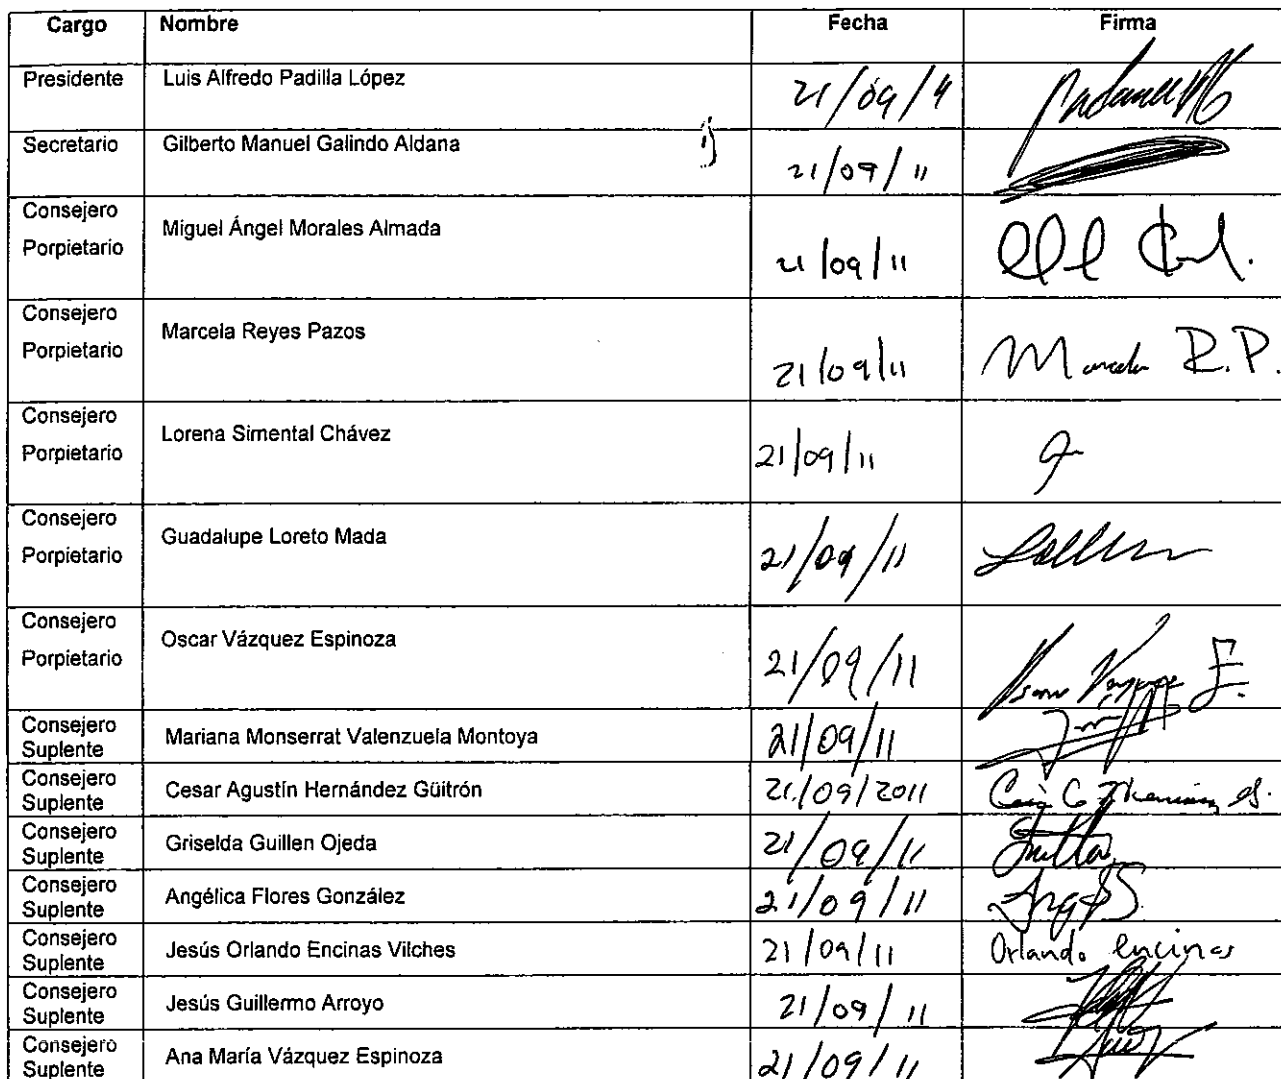 Cargo Nombre Fecha Firma
Presidente Luis Alfredo Padilla López 21/09/11
Secretario Gilberto Manuel Galindo Aldana 21/09/11
Consejero
Porpietario Miguel Ángel Morales Almada 21/09/11
Consejero
Porpietario Marcela Reyes Pazos 21/09/11 Marcela R.P.
Consejero
Porpietario Lorena Simental Chávez 21/09/11
Consejero
Porpietario Guadalupe Loreto Mada 21/09/11
Consejero
Porpietario Oscar Vázquez Espinoza 21/09/11
Consejero
Suplente Mariana Monserrat Valenzuela Montoya 21/09/11
Consejero
Suplente Cesar Agustín Hernández Güitrón 21/09/2011
Consejero
Suplente Griselda Guillen Ojeda 21/09/11
Consejero
Suplente Angélica Flores González 21/09/11
Consejero
Suplente Jesús Orlando Encinas Vilches 21/09/11 Orlando encinas
Consejero
Suplente Jesús Guillermo Arroyo 21/09/11
Consejero
Suplente Ana María Vázquez Espinoza 21/09/11